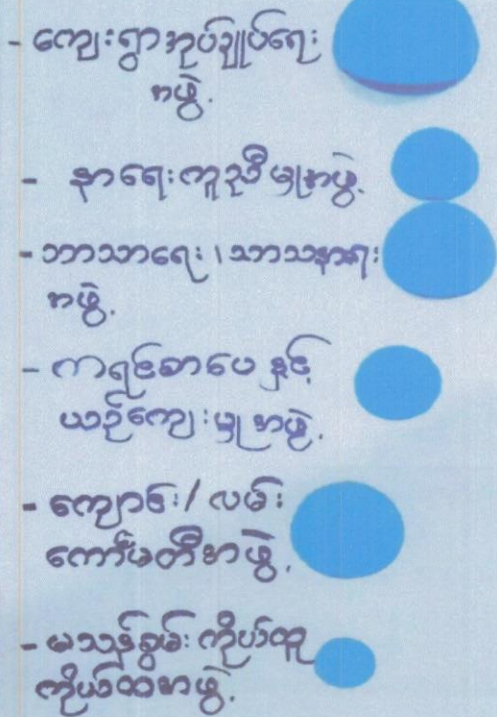 - ကျေးရွာအုပ်ချုပ်ရေး
အဖွဲ့.
- နာရေးကူညီမှုအဖွဲ့.
- ဘာသာရေး၊သာသနာရေး
အဖွဲ့.
- ကရင်စာပေနှင့်
ယဉ်ကျေးမှုအဖွဲ့.
- ကျောင်း/လမ်း
ကော်မတီအဖွဲ့.
- မသန်စွမ်းကိုယ်ထူ
ကိုယ်ထအဖွဲ့.